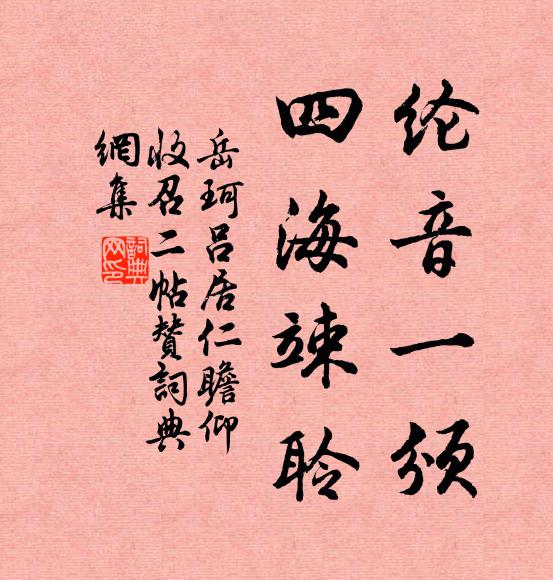 纶音一颁
四海竦聆
岳珂吕居仁瞻仰
收召二帖赞词典
網集
詞典網印